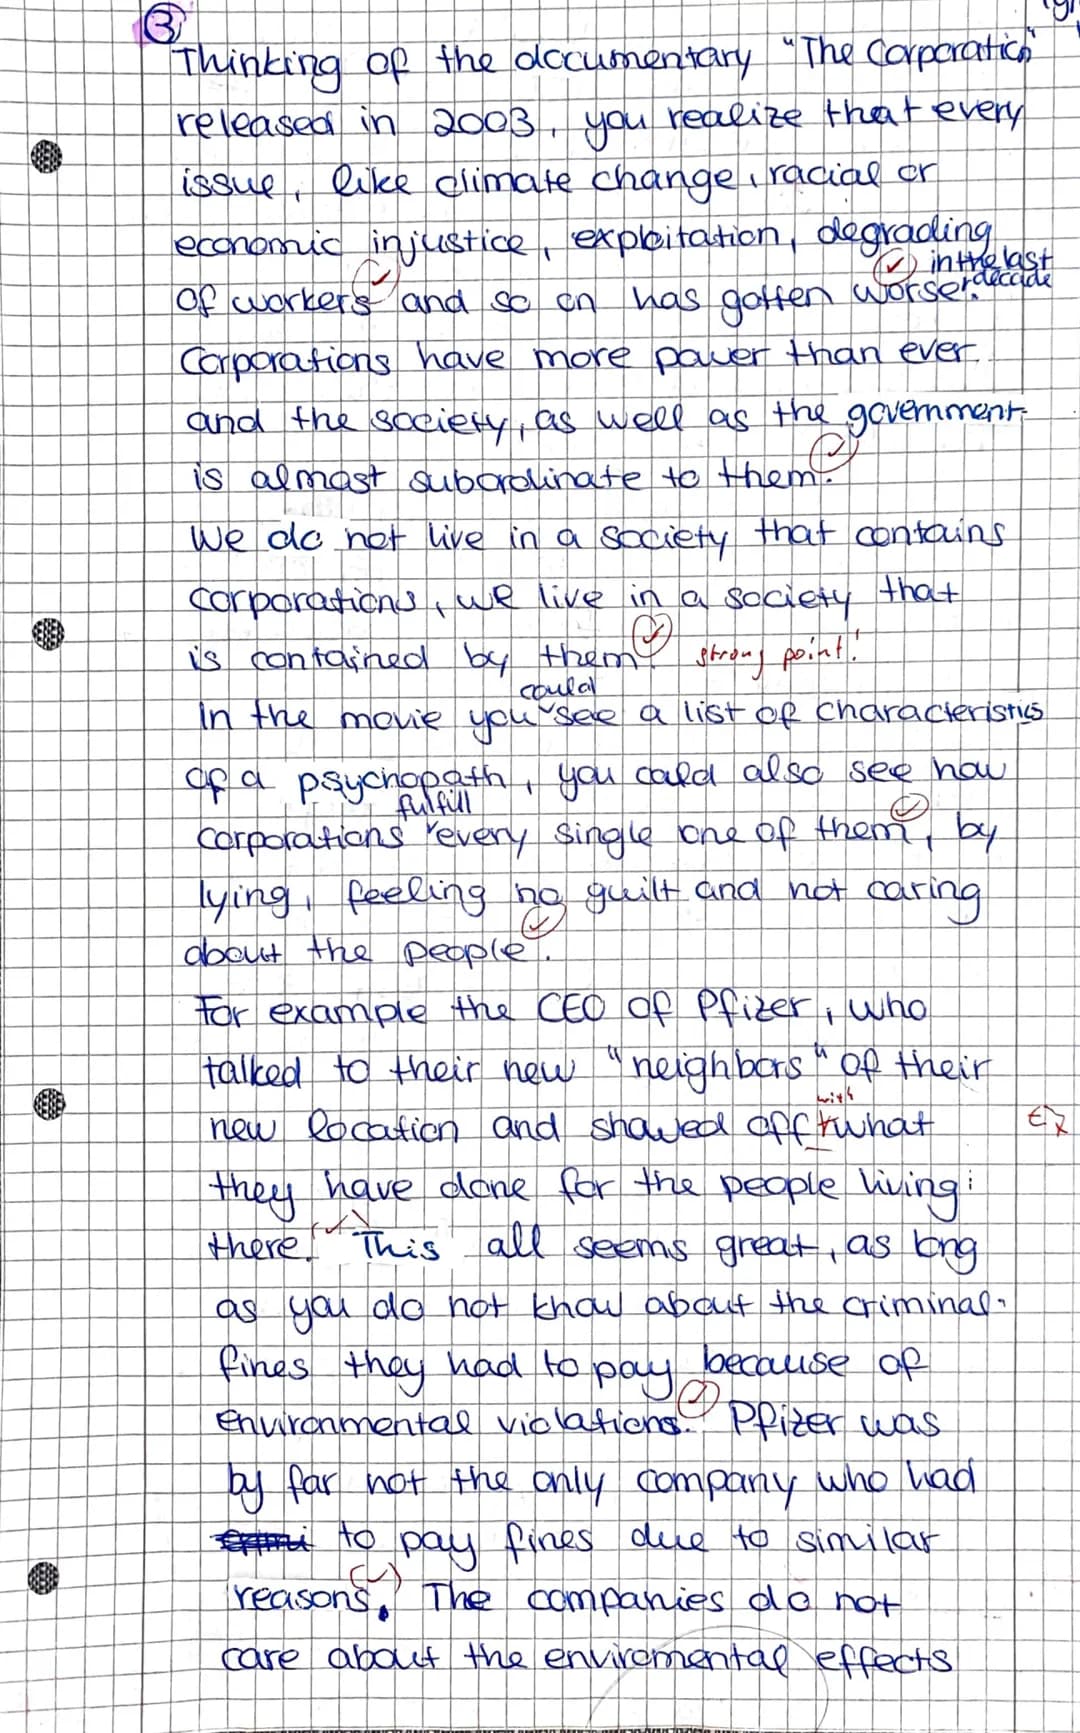 3
Thinking of the documentary "The Corporation"
released in 2003, you realize that every
issue, like climate change, racial or
economic injustice, exploitation, degrading
in the last
of workers and so on has gotten worse. decade
Corporations have more power than ever
and the society, as well as the government
is almost subordinate to them.
We do not live in a society that contains
corporations, we live in a society that
is contained by them. strong point!
could
In the movie you see a list of characteristics
of a psychopath, you could also see how
fulfill
corporations every single one of them, by
lying, feeling no guilt and not caring
about the people.
For example the CEO of Pfizer, who
talked to their new "neighbors" of their
with
new location and showed off what Ex
they have done for the people living
there. This all seems great, as long
as you do not know about the criminal
fines they had to pay because of
environmental violations. Pfizer was
by far not the only company who had
to pay fines due to similar
reasons. The companies do not
care about the enviromental effects